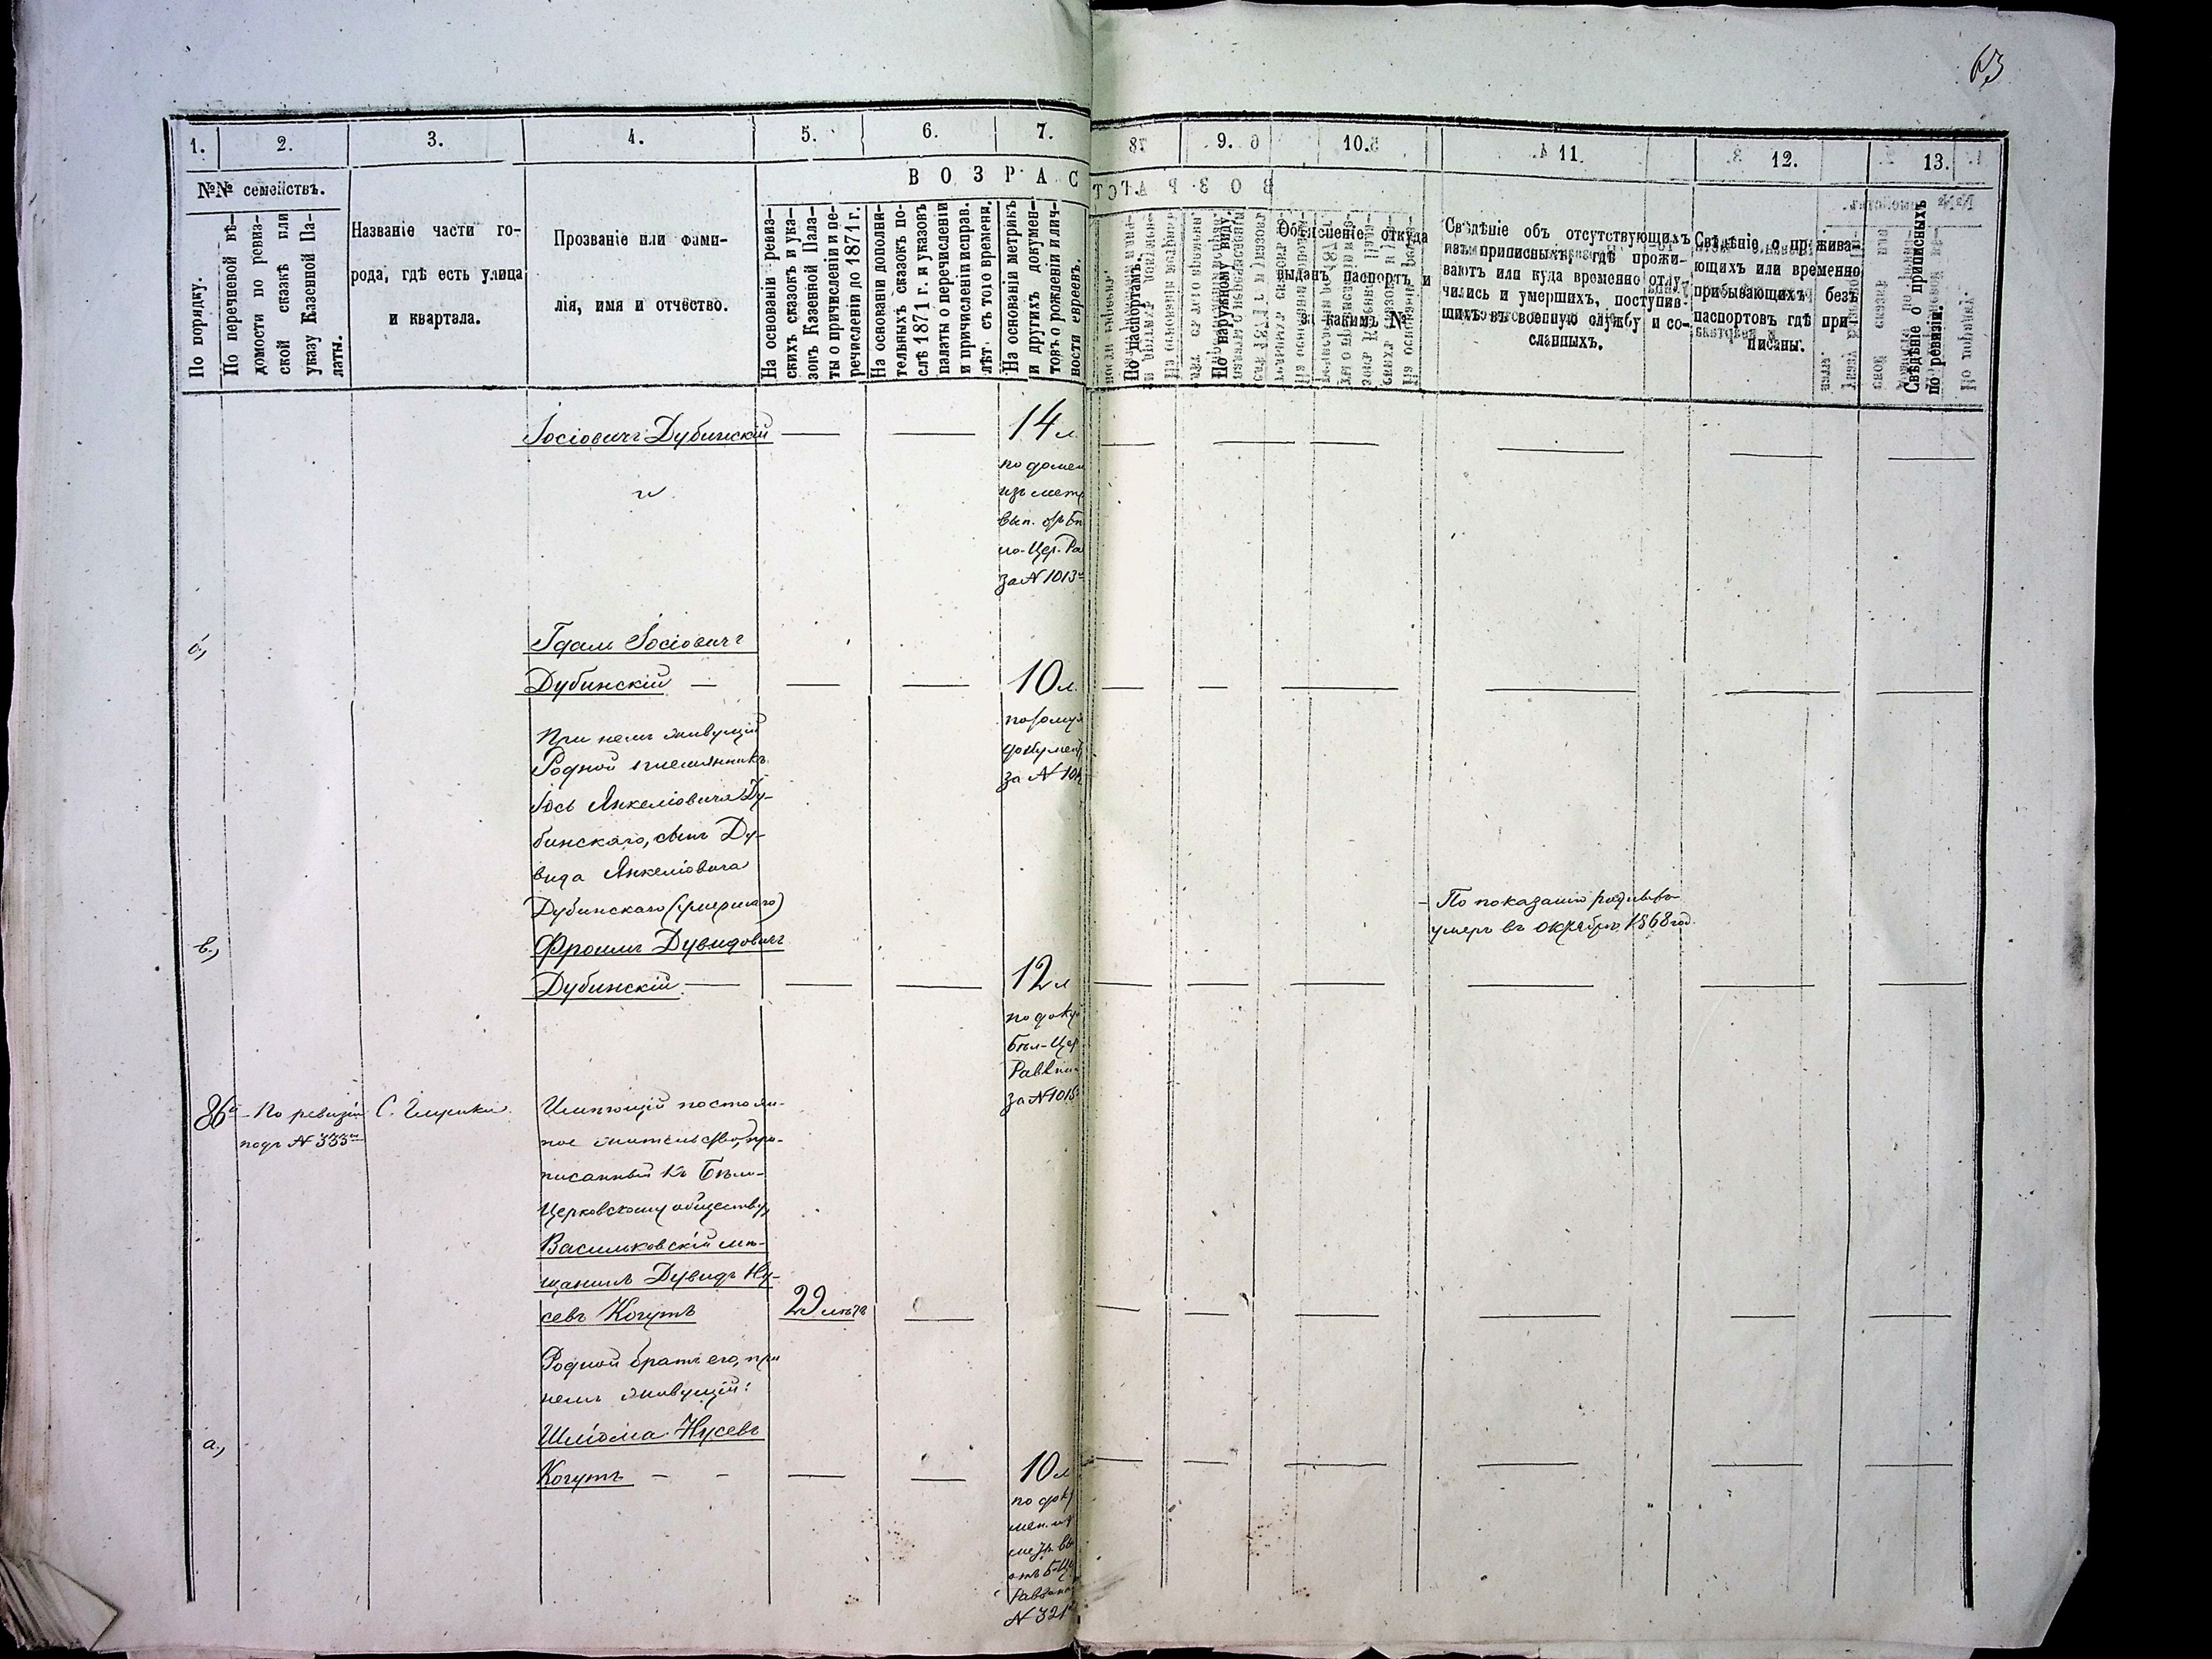 63
1.
2.
3.
4.
5.
6.
7.
8.
9.
10.
11.
12.
13.
№№ семействъ.
ВОЗРАСТ
По порядку.
По перечневой вѣ-
домости по ревиз-
ской сказкѣ или
указу Казенной Па-
латы.
Названіе части го-
рода, гдѣ есть улица
и квартала.
Прозваніе или фами-
лія, имя и отчество.
На основаніи ревиз-
скихъ сказокъ и ука-
зовъ Казенной Пала-
ты о причисленіи и пе-
речисленіи до 1871 г.
На основаніи дополни-
тельныхъ сказокъ по-
слѣ 1871 г. и указовъ
палаты о перечисленіи
и причисленіи исправ.
лѣт. съ того времени.
На основаніи метрикъ
и другихъ докумен-
товъ о рожденіи и лич-
ности евреевъ.
По паспортамъ.
По наружному виду.
Объясненіе откуда
выданъ паспортъ и
за какимъ №
Свѣдѣніе об отсутствующихъ
изъ приписныхъ, гдѣ прожи-
ваютъ или куда временно отлу-
чились и умершихъ, поступив-
шихъ въ военную службу и со-
сланныхъ.
Свѣдѣніе о прожива-
ющихъ или временно
прибывающихъ безъ
паспортовъ гдѣ при-
писаны.
Свѣдѣніе о приписныхъ
по ревизіи.
Іосіовичъ Дубинскій — — 14 л.
изъ метр
вып.
ло-Цер. Ра
за № 1013
б,
Іосіовичъ
Дубинскій — — — 10 л.
При немъ живущій
Родной племянникъ
Іось Янкеліовича Ду-
бинскаго, сынъ Ду-
вида Янкеліовича
Дубинскаго (умершаго)
докумен
за №
в,
Фроимъ Дувидовичъ
Дубинскій — — — 12 л
По показанію
умеръ въ октябрѣ 1868 год.
по доку
Бѣл-Цер
Раввин
за № 1015
86й
По ревизіи
подъ № 333м
С.
Имѣющій постоян-
ное жительство, при-
писанный къ Бѣло-
Церковскому обществу,
Васильковскій мѣ-
щанинъ Дувидъ Ну-
севъ Когутъ 29 лѣтъ
Родной братъ его, при
немъ живущій:
а,
Шліома Нусевъ
Когутъ — — — — 10 л
по док
мен. из
метр. вы
отъ Б-Ц
Раввина
№ 321